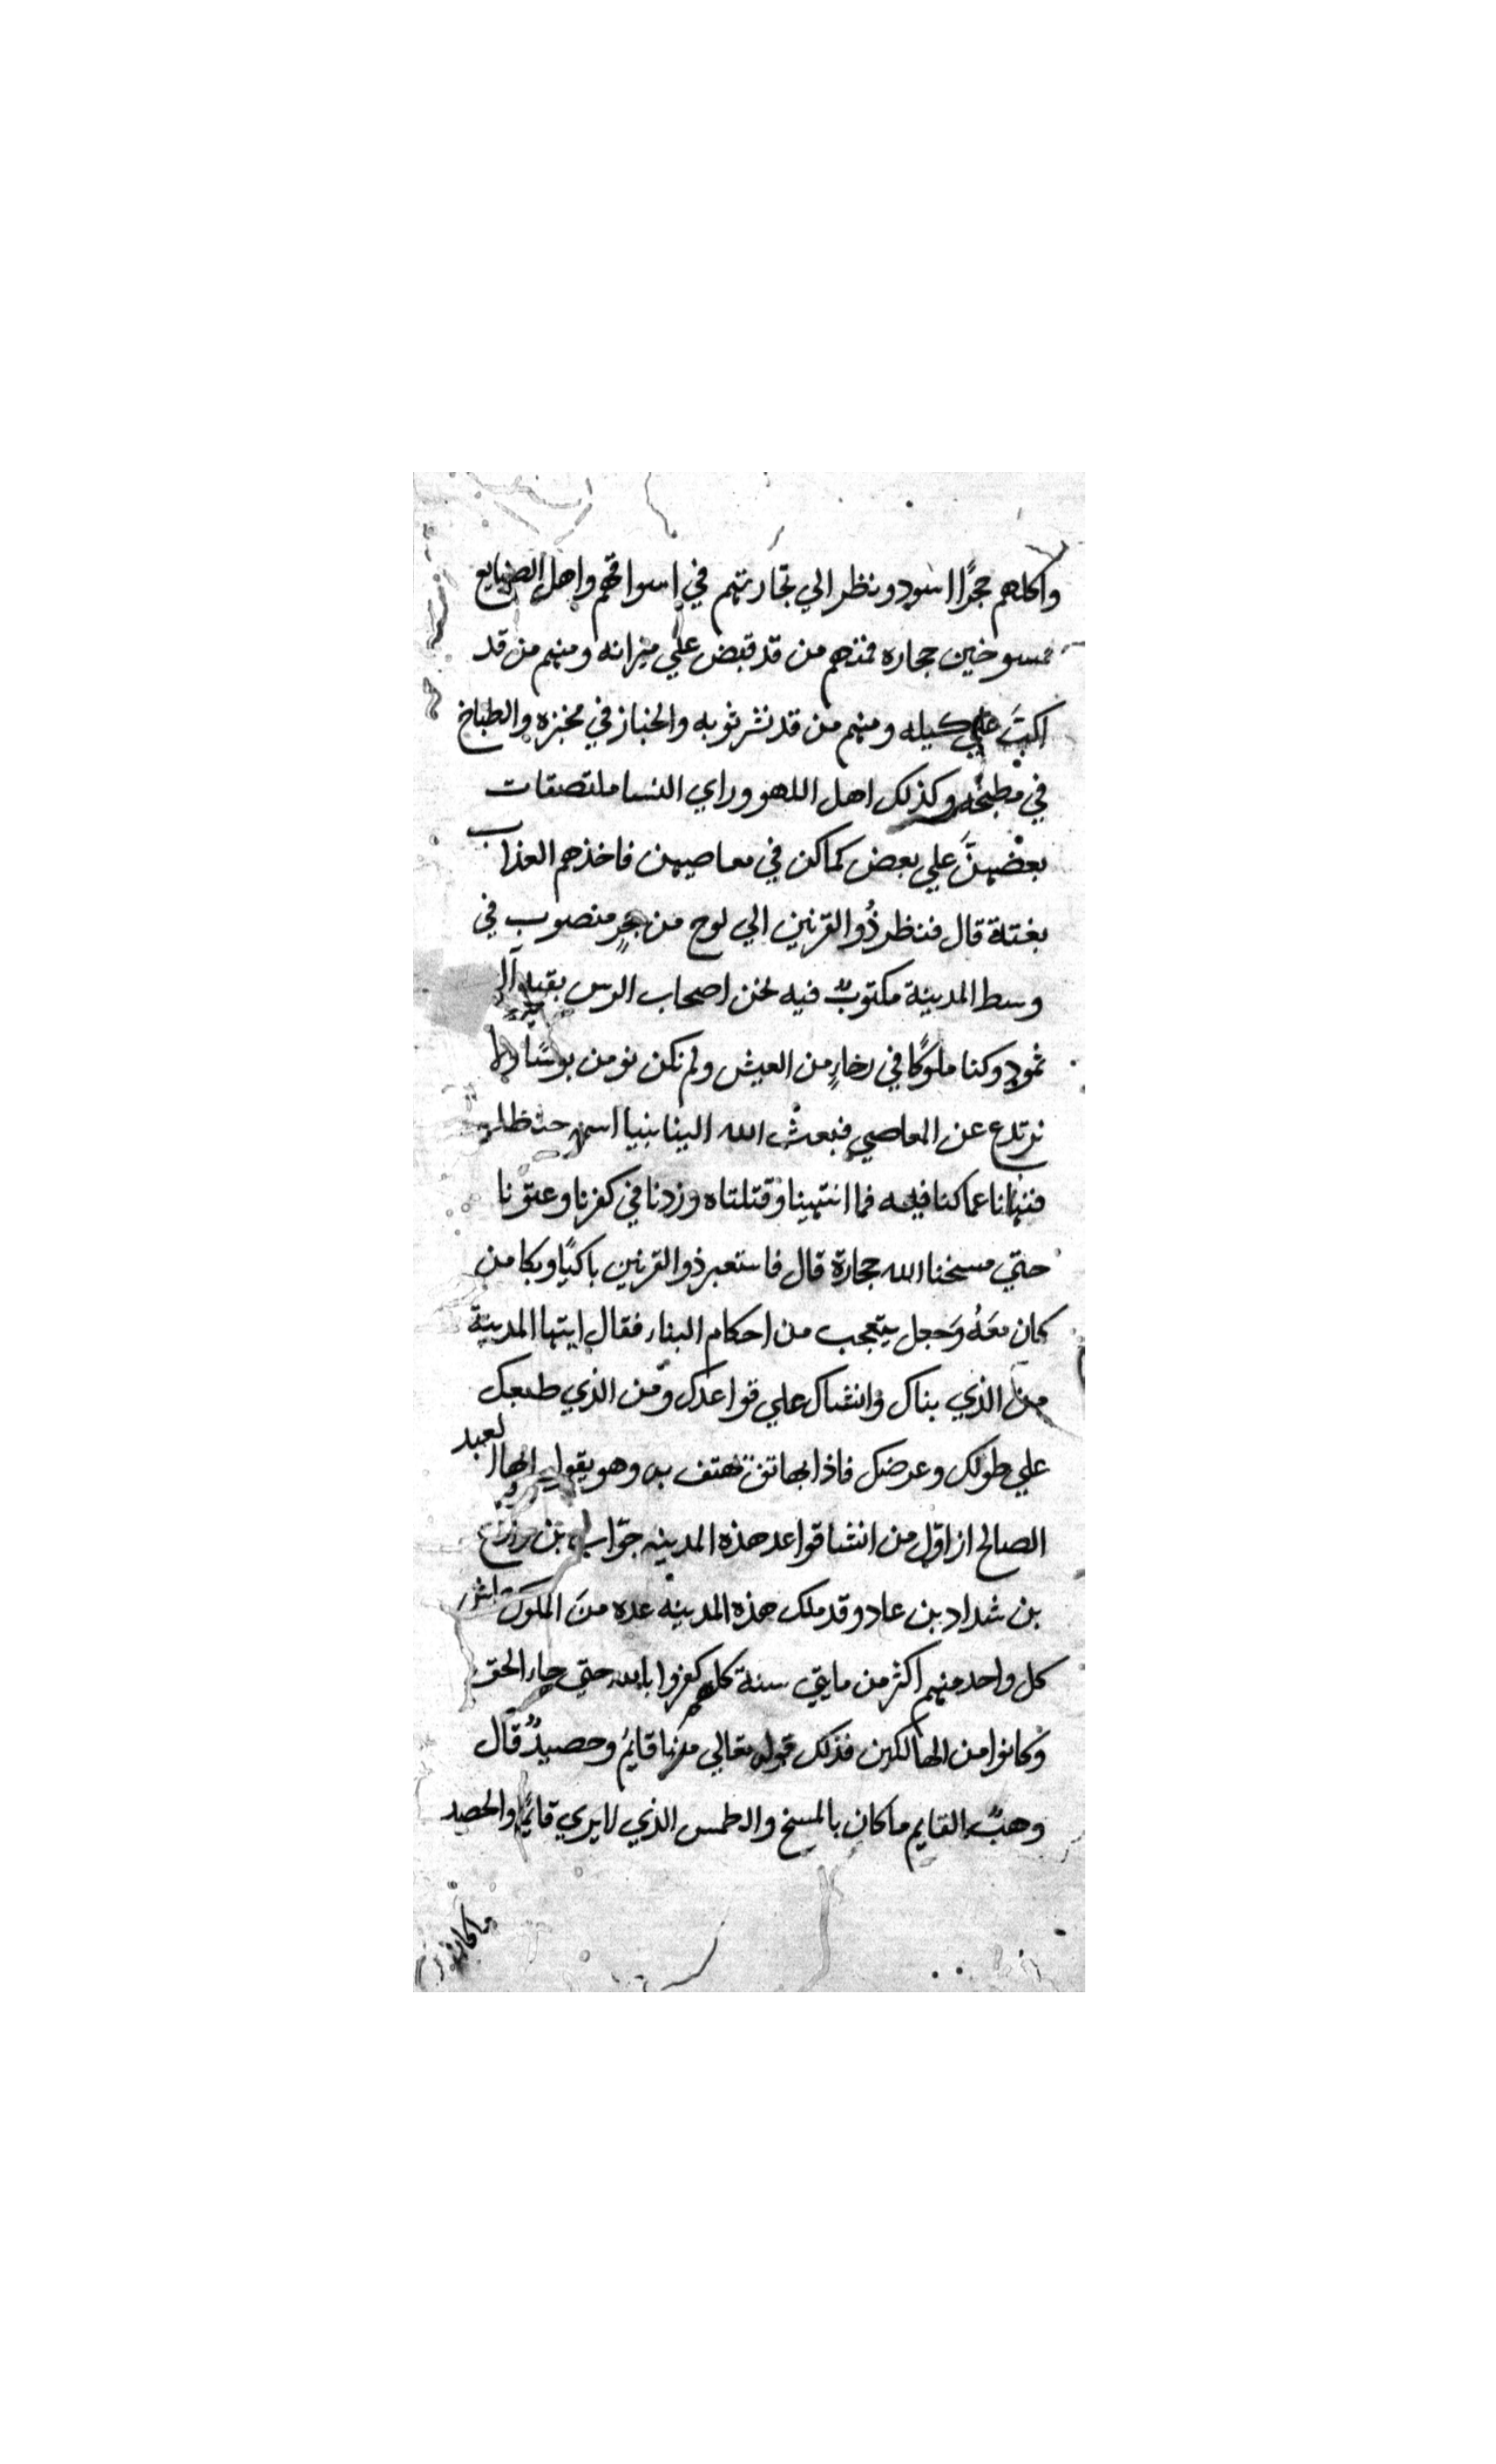 واكلهم حجرًا اسود ونظر الي تجارتهم في اسواقهم واهل الصنايع
ممسوخين حجاره فمنهم من قد قبض علي ميزانه ومنهم من قد
اكبَّ علي كيله ومنهم من قد نشر ثوبه والخباز في مخبزه والطباخ
في مطبخه وكذلك اهل اللهو وراي النسا ملتصقات
بعضهنَّ علي بعض كما كن في معاصيهن فاخذهم العذاب
بغتة قال فنظر ذُو القرنين الي لوح من حجرٍ منصوب في
وسط المدينة مكتوبٌ فيه نحن اصحاب الرس بقية آل
ثمود وكنا ملوكًا في رخاءٍ من العيش ولم نكن نومن
نرتدع عن المعاصي فبعث الله الينا نبيا اسمه حنظلة
فنهانا عما كنا فيه فما انتهينا وقتلناه وزدنا في كفرنا وعتونا
حتي مسخنا الله حجارة قال فاستعبر ذو القرنين باكيًا وبكا من
كان معَهُ وَجعل يتعجب من احكام البناء فقال ايتها المدينة
من الذي بناك وانشاك علي قواعدك ومن الذي طبعك
علي طولك وعرضك فاذا بهاتف هتف به وهو يقول ايها العبد
الصالح ان اوّل من انشا قواعد هذه المدينه جوّاب بن
بن شداد بن عاد وقد ملك هذه المدينه عده منَ الملوك
كل واحد منهم اكثر من مايتي سنة كلهم كفروا بالله حتي جاء الحق
وكانوا من الهالكين فذلك قوله تعالي منها قايمٌ وحصيدٌ قال
وهبٌ القايم ما كان بالمسخ والطمس الذي لا يري قايمًا والحصيد